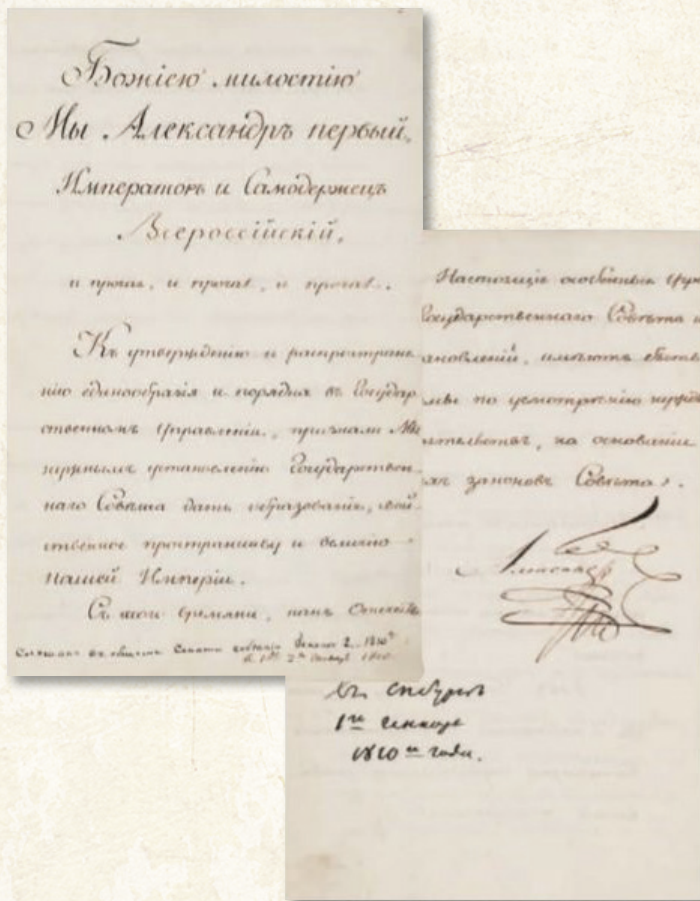 Божіею милостію
Мы Александръ первый,
Императоръ и Самодержецъ
Всероссійскій,
и прочая, и прочая, и прочая.
Къ утвержденію и распростране
нію единообразія и порядка въ Государ
ственномъ Управленіи, признали Мы
нужнымъ установленію Государствен
наго Совѣта дать образованіе, свой
ственное пространству и величію
Нашей Имперіи.
Съ того времени, какъ
Января 2. 1810
Настоящіе особенныя
Государственнаго Совѣта и
ановленій, имѣютъ быть
по усмотрѣнію нужды
на основаніи
законовъ Совѣта.
Александръ
въ Спбургѣ
1го Генваря
1810го года.